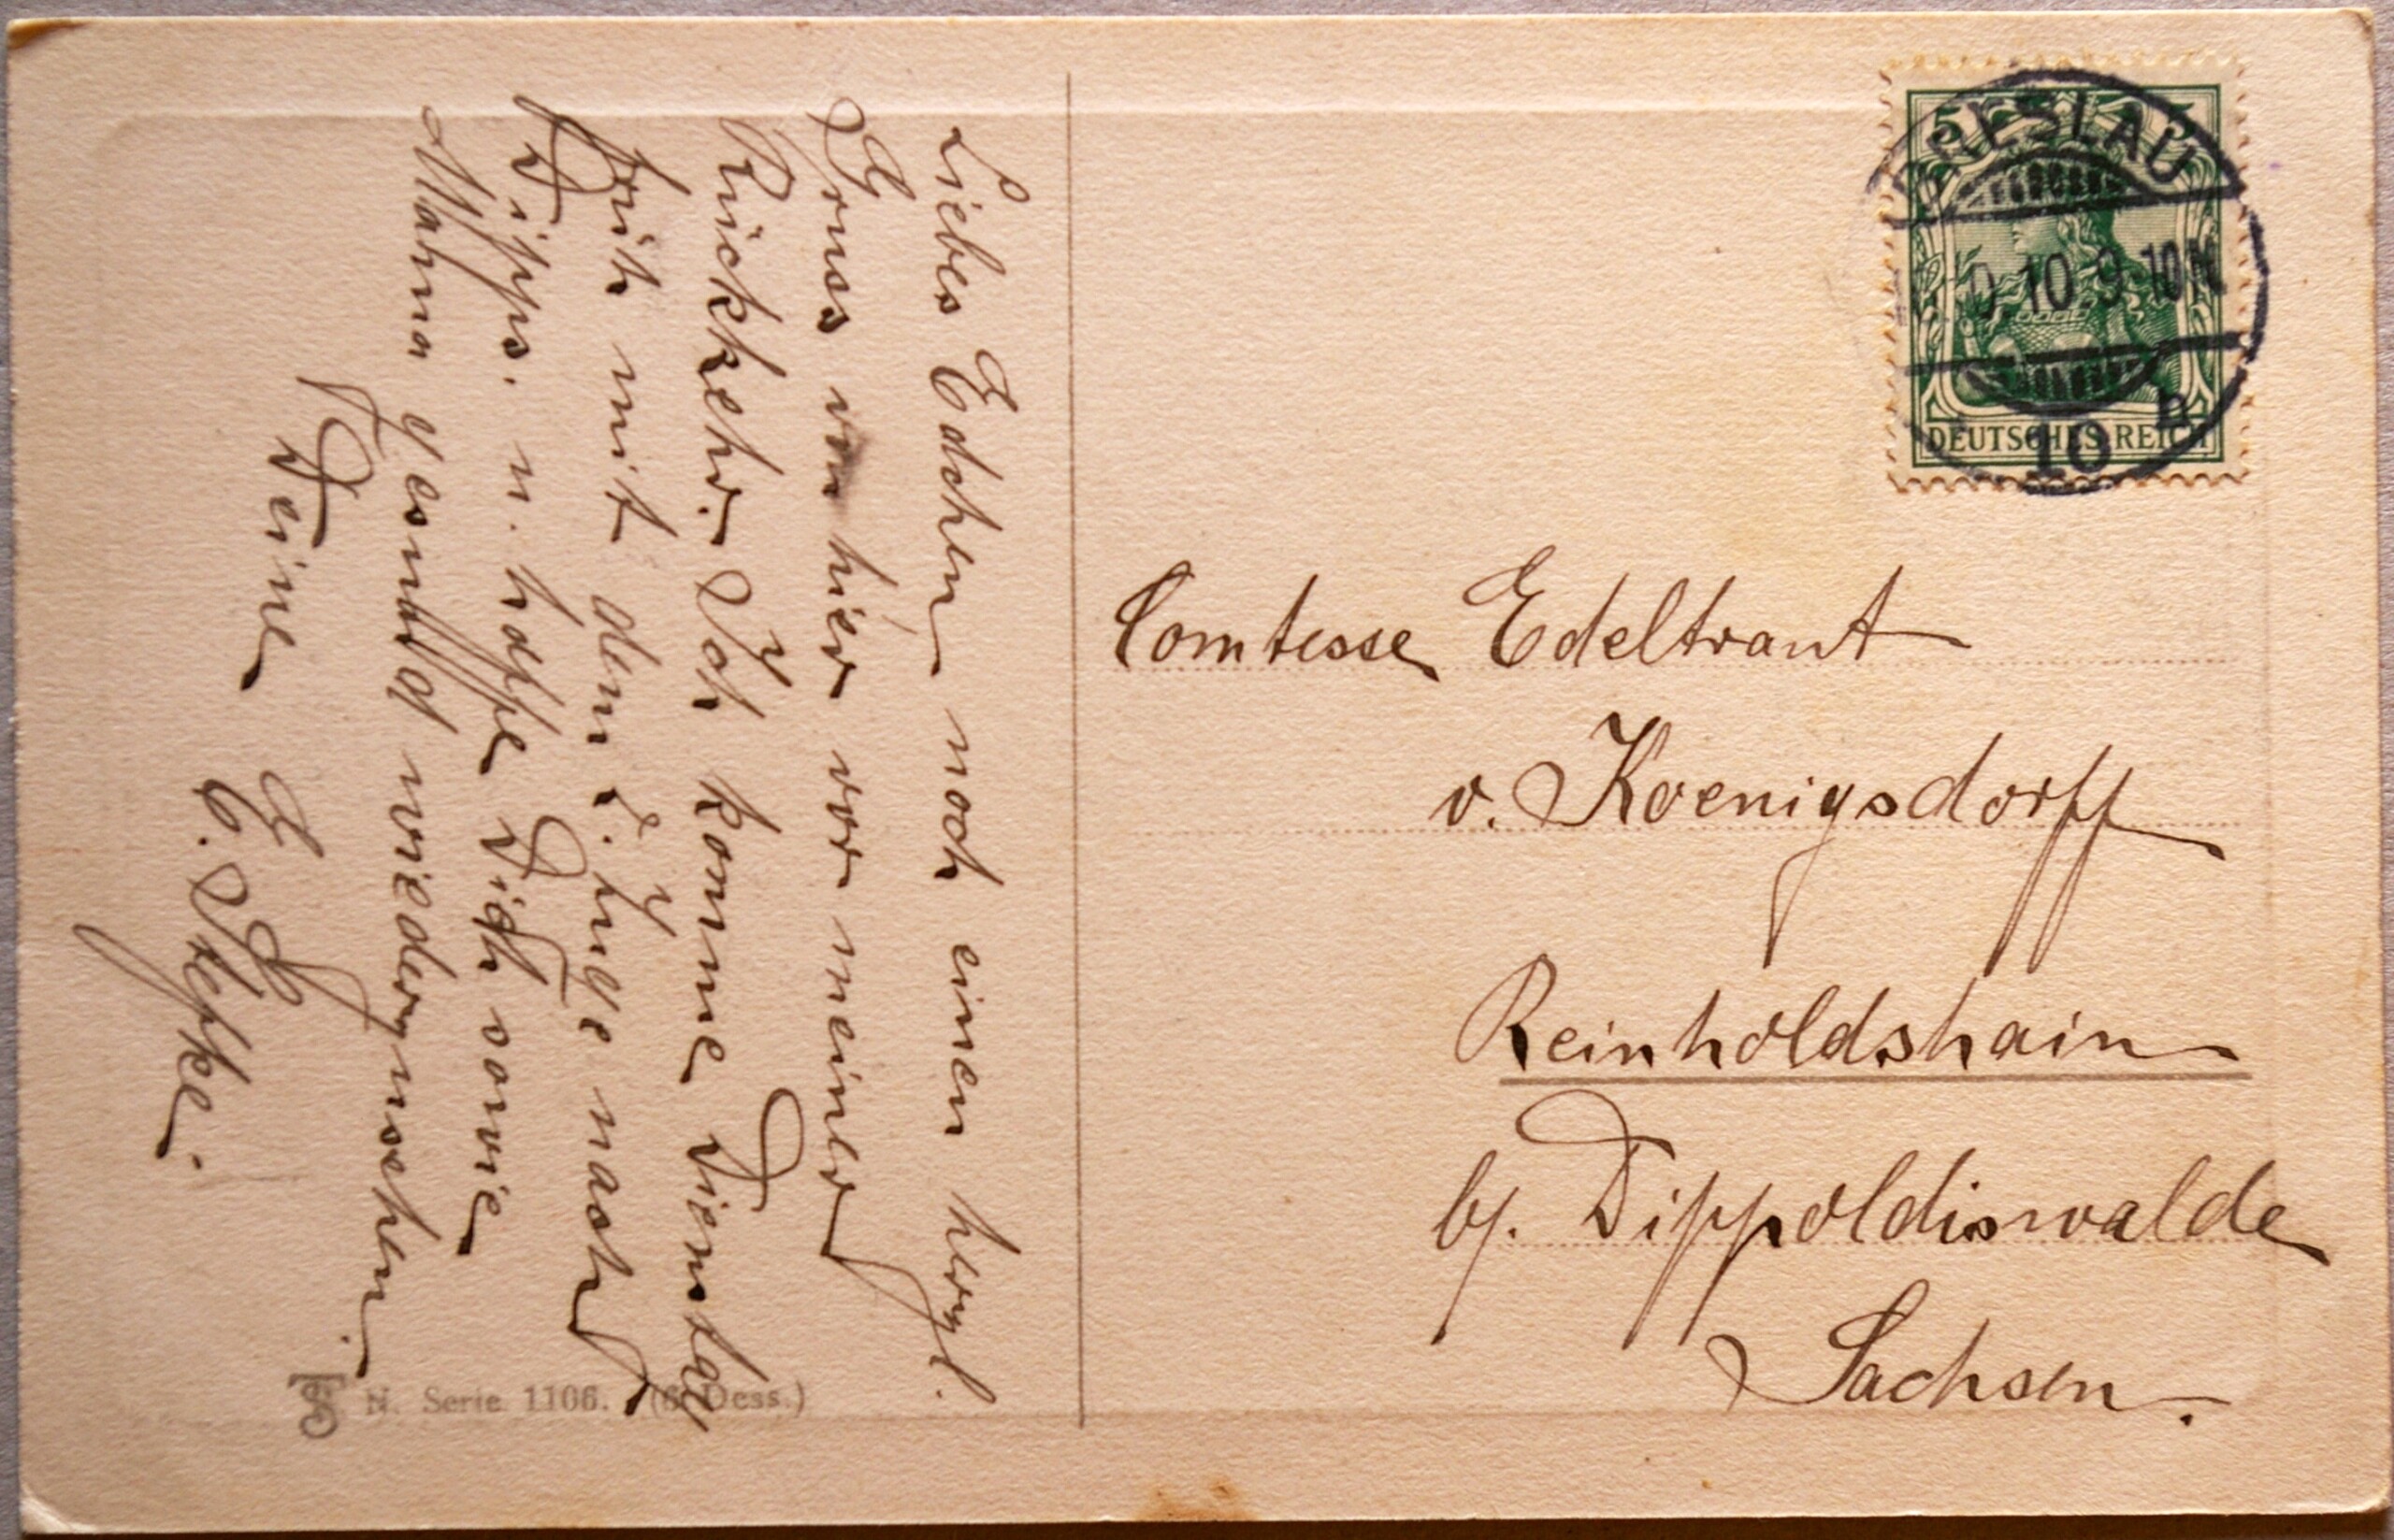 Liebes Edchen noch einen herzl.
Gruss von hier vor meiner
Rückkehr. Ich komme Dienstag
früh mit dem 1. Zuge nach
Dipps. u. hoffe Dich sowie
Mama gesund wiederzusehen.
Deine E. Stefke.
BRESLAU
10.9.10N
10 h
5
DEUTSCHES REICH
Comtesse Edeltraut
v. Koenigsdorff
Reinholdshain
b/. Dippoldiswalde
Sachsen.
N. Serie 1106. (6 Dess.)